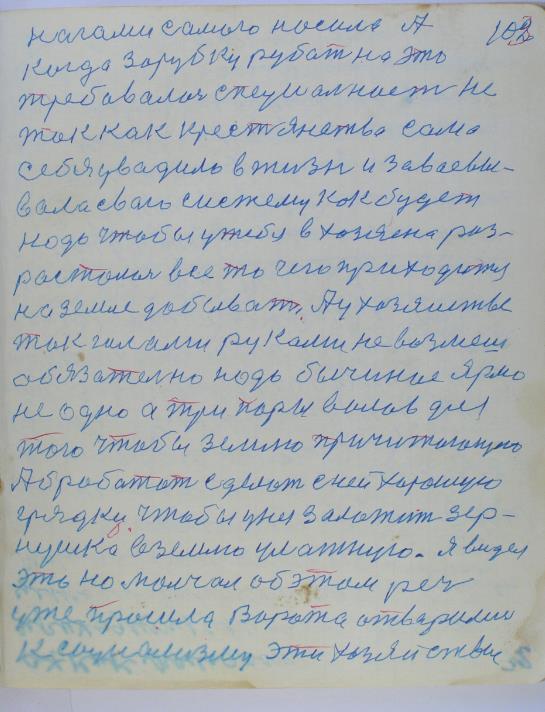 нагами самого носила А 103
когда зарубку рубат на это
требавалоя специалност не
так как крестянства сама
себя увадило в жизн и заваевы-
вала сваю систему как будет
нодь чтобы у тебя в хазяена раз-
расталоя все то чего приходится
на земле добыват. А у хозяистве
так голами руками не возмеш
обязателно нодь бычиное Ярмо
не одно а три пары валов для
того чтобы землю причитающую
Абработат сделат с ней харошую
грядку, чтобы у ней заложит зер-
нушка в землю уматную. Я видел
эть но молчал об этом реч
уже прошла Варота атварили
к социализму эти хозяйствы